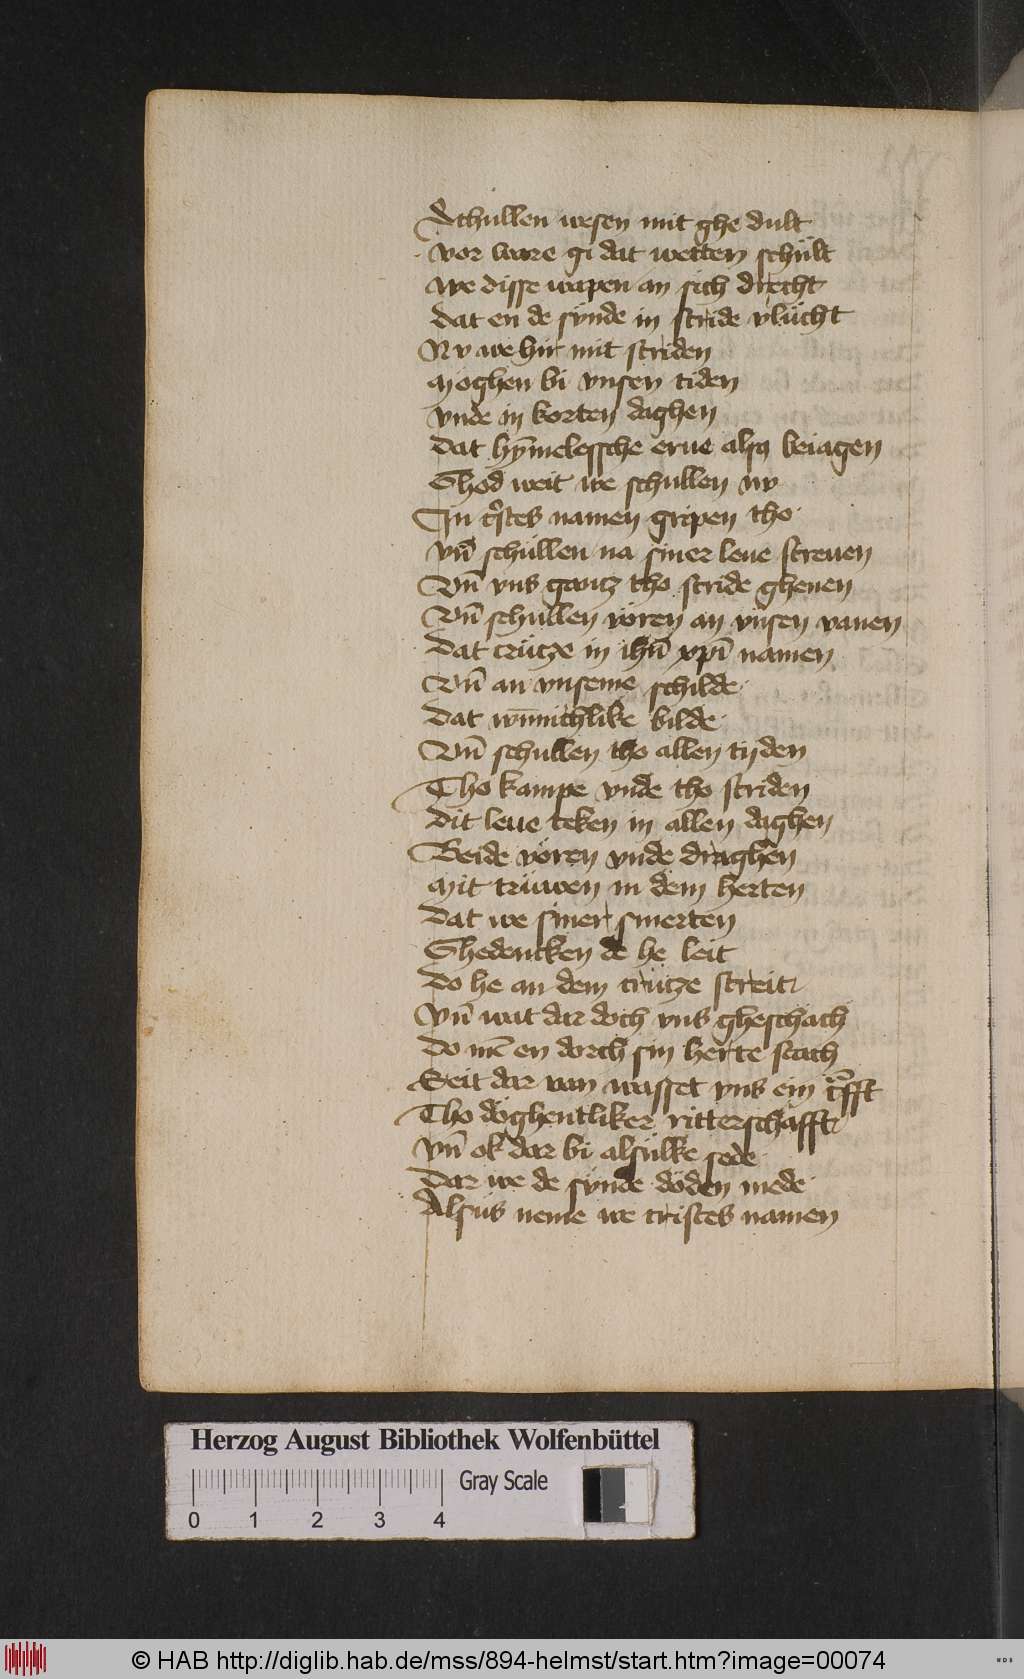 Schullen wesen mit ghe dult
vor ware gi dat wetten schült
we disse wapen an sich drecht
dat en de synde in stride vlücht
Nv we hir mit striden
moghen bi vnsen tiden
vnde in korten daghen
dat hȳmelessche erue also beiagen
Ghod weit we schullen nv
In cristes namen gripen tho
vn̄ schüllen na siner leue streuen
Vn̄ vns gantz tho stride gheuen
Vn̄ schullen vören an vnsen vanen
dat crütze in ihū xpī namen
Vn̄ an vnseme schilde
dat wn̄nichlike bilde
Vn̄ schullen tho allen tijden
Tho kampe vnde tho striden
dit leue teken in allen daghen
Beide vören vnde draghen
mit trüwen in dem herten
dat we siner smerten
Ghedencken de he leit
do he an dem crütze streit
vn̄ wat dar doch vns gheschach
do me en dorch sin herte stach
Seit dar van wasset vns ein crafft
Tho döghentliker ritterschafft
vn̄ ok dar bi alsülke sede
dar we de synde döden mede
Alsüs neme we cristes namen
Herzog August Bibliothek Wolfenbüttel
Gray Scale
0 1 2 3 4
© HAB http://diglib.hab.de/mss/894-helmst/start.htm?image=00074